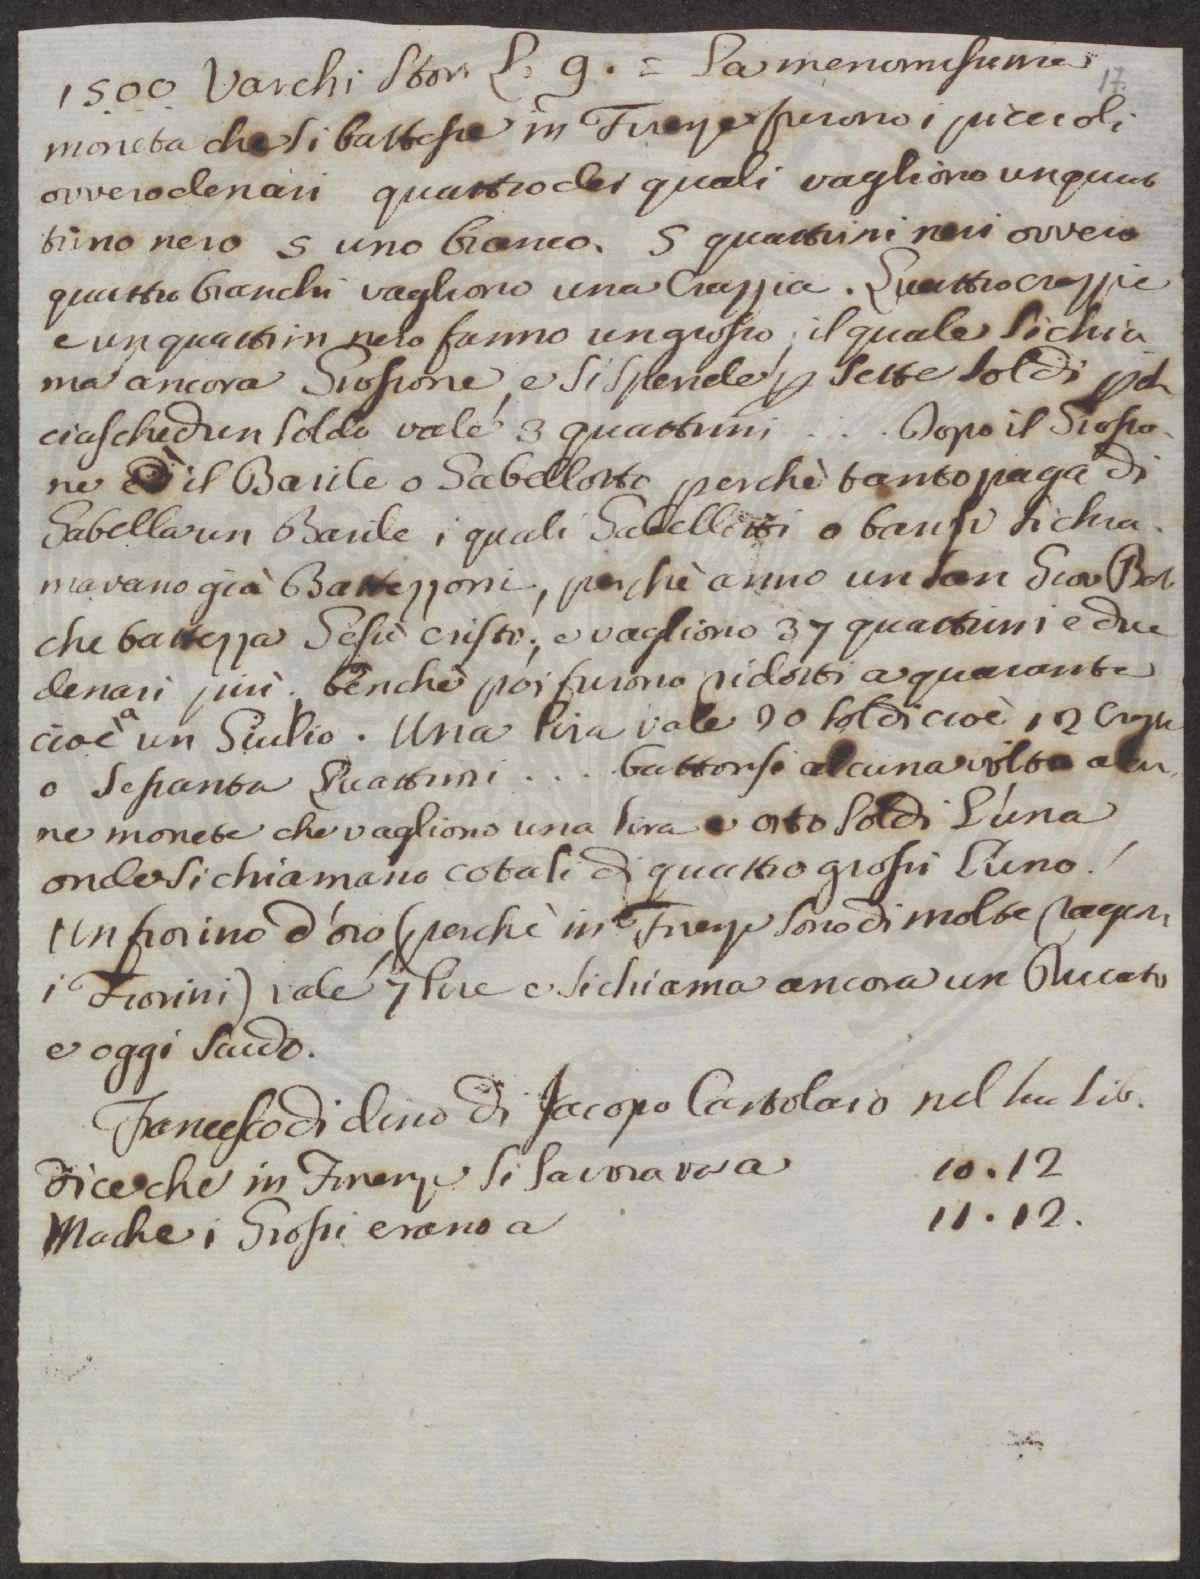 1500 Varchi Stor. L. 9. = La menomissima
17.
moneta che si battesse in Firenze furono i piccioli
ovvero denari quattro dei quali vagliono un quat
trino nero 5 uno bianco. 5 quattrini neri ovvero
quattro bianchi vagliono una Crazzia. Quattro crazzie
e un quattrin nero fanno un grosso, il quale si chia
ma ancora Grossone, e si spende p sette soldi
ciaschedun soldo vale 3 quattrini ... Dopo il Grosso-
ne è il Barile o Gabellotto perchè tanto paga di
Gabella un Barile i quali Gabellotti o barili si chia-
mavano già Battezzoni, perchè anno un San Giov Bat
che battezza Gesù Cristo, e vagliono 37 quattrini e due
denari più. benchè poi furono ridotti a quaranta
cioè a un Giulio. Una lira vale 20 soldi cioè 12 Crazie
o sessanta Quattrini ... battonsi alcuna volta alcu-
ne monete che vagliono una lira e otto soldi l'una
onde si chiamano cotali di quattro grossi l'uno.
Un fiorino d'oro (perchè in Firenze sono di molte ragioni
i Fiorini) vale 7 lire e si chiama ancora un Ducato
e oggi scudo.
Francesco di dino di Jacopo Cartolaio nel suo lib.
dice che in Firenze si lavorava a 10.12
Ma che i Grossi erano a 11.12.